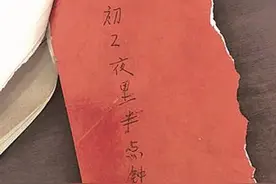 初2夜里半点钟